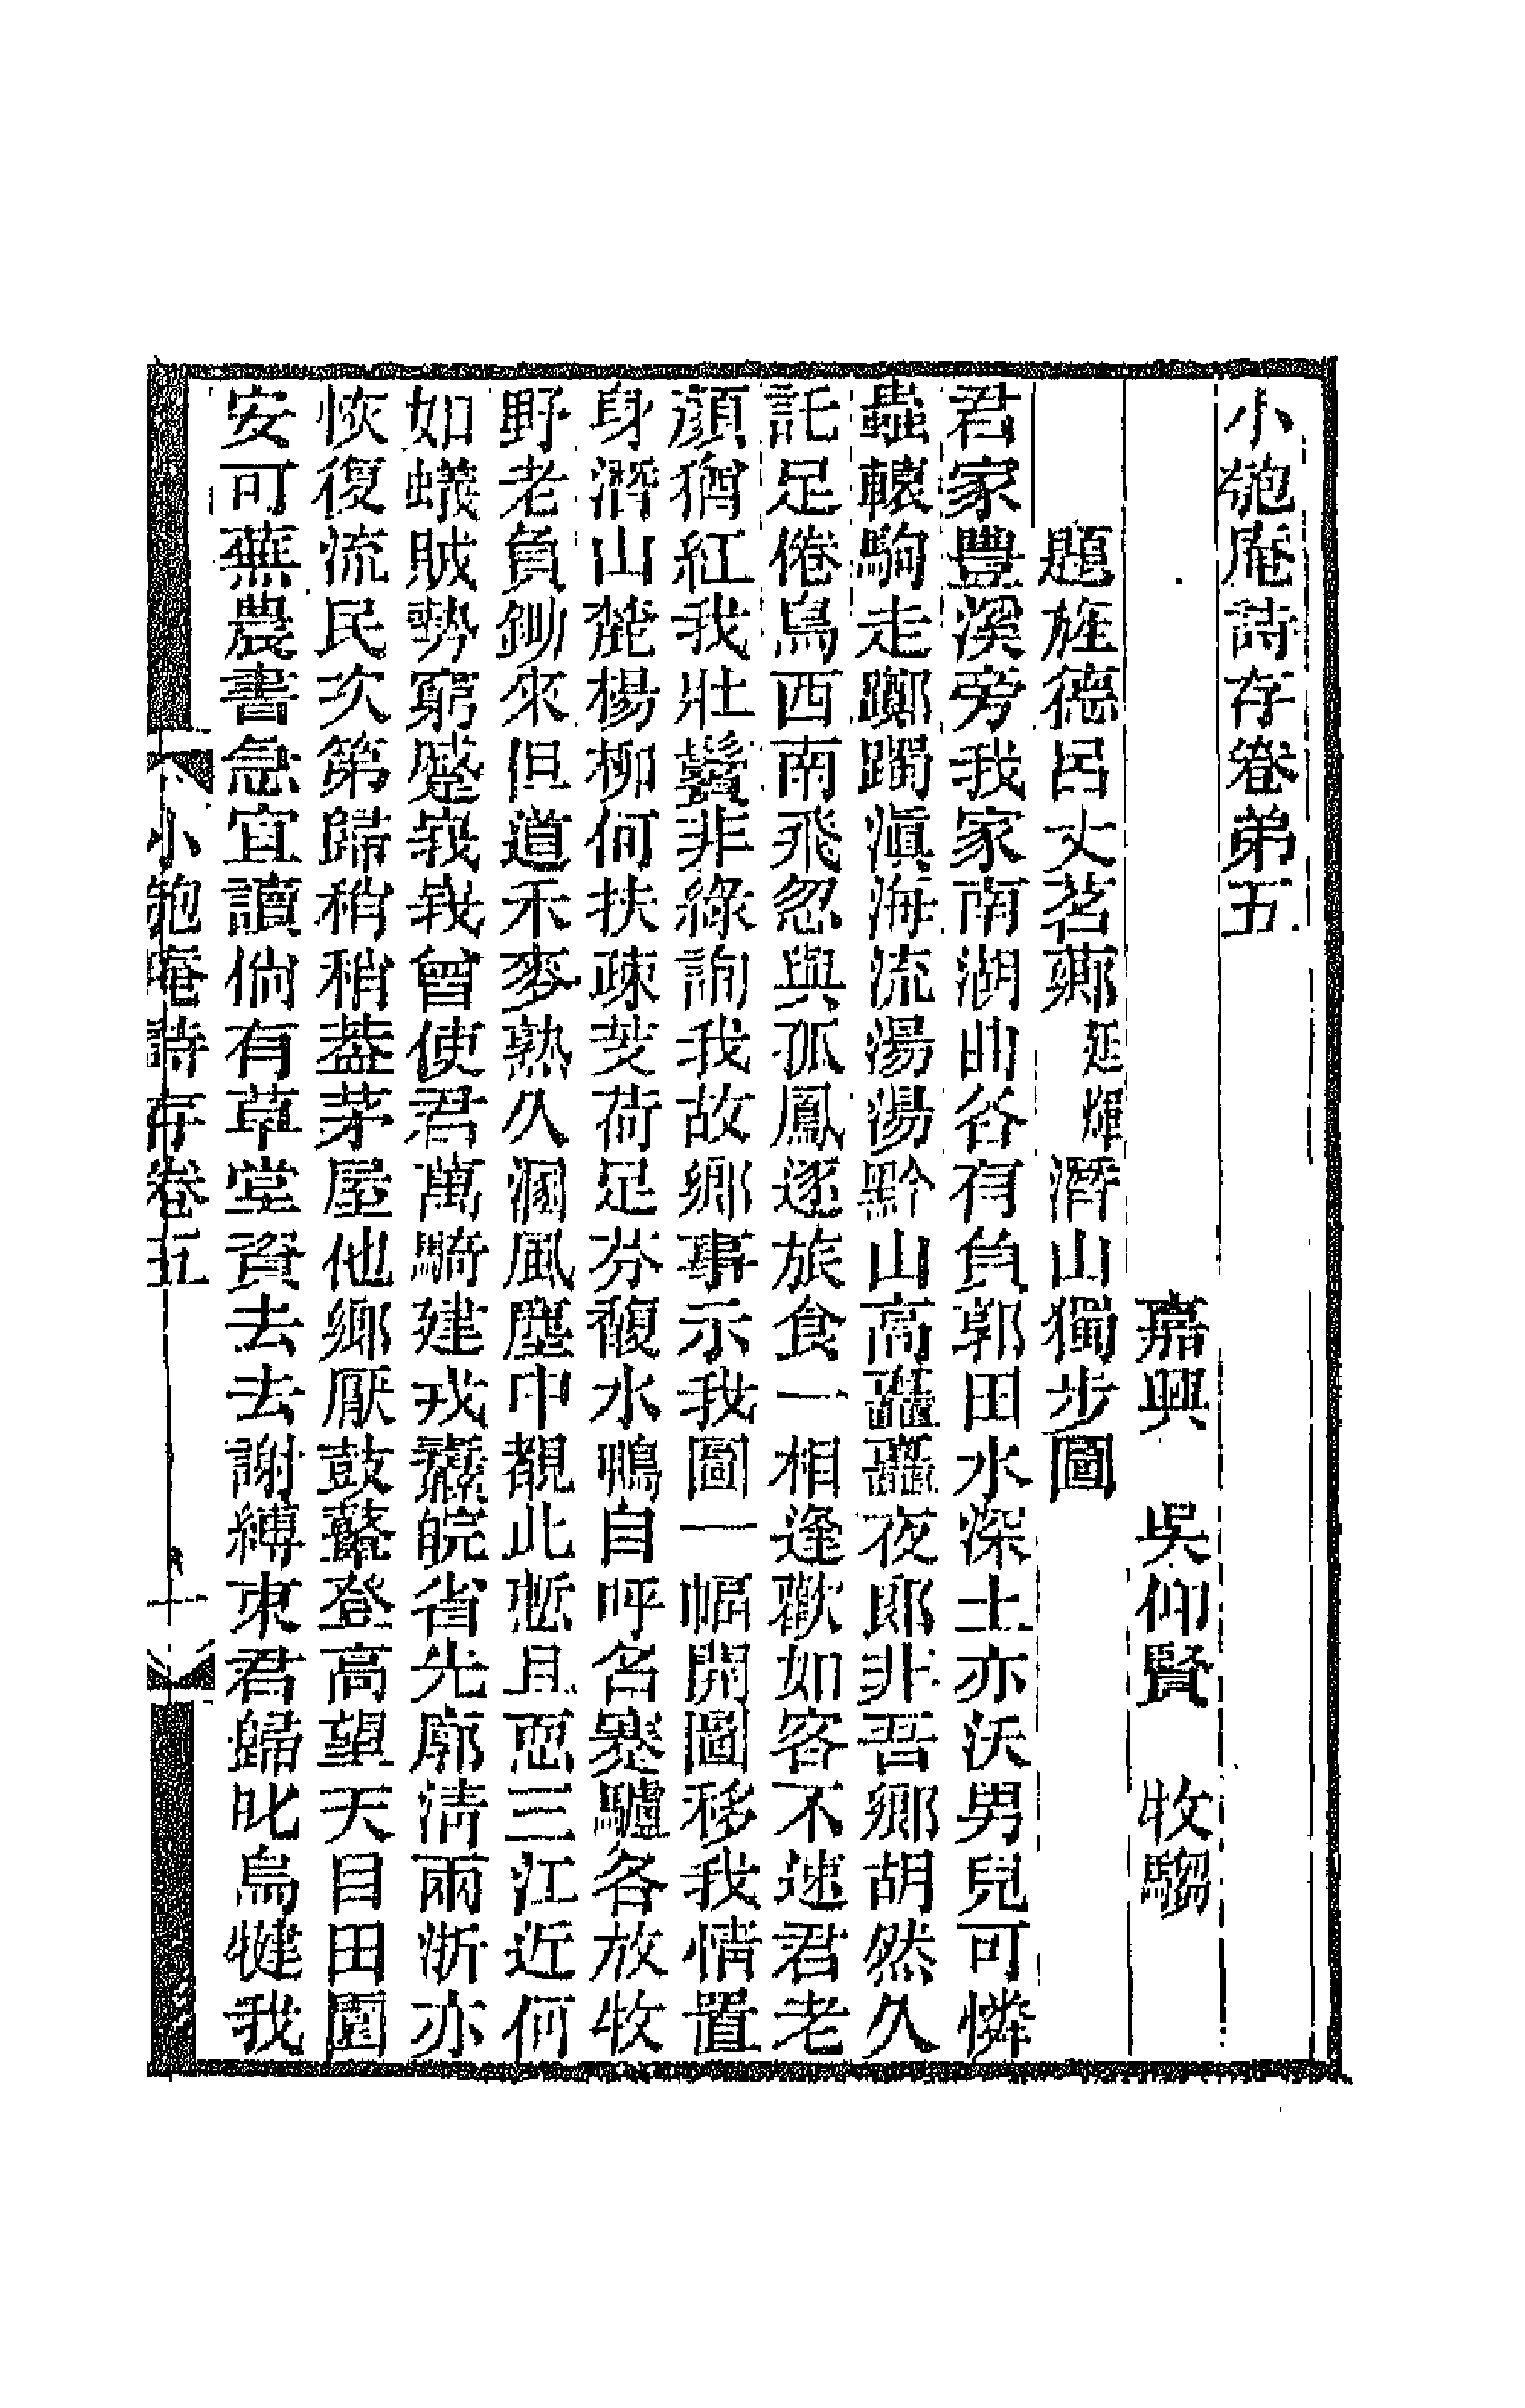 小匏庵詩存卷弟五
嘉興　吳仰賢　牧騶
題旌德呂丈茗薌延煇潛山獨步圖
君家豐溪旁我家南湖曲各有負郭田水深土亦沃男兒可憐
蟲轅駒走躑躅滇海流湯湯黔山高矗矗夜郎非吾鄉胡然久
託足倦鳥西南飛忽與孤鳳逐旅食一相逢歡如客不速君老
顏猶紅我壯鬢非綠詢我故鄉事示我圖一幅開圖移我情置
身潛山麓楊柳何扶疎芰荷足芬馥水鴨自呼名蹇驢各放牧
野老負鋤來但道禾麥熟久溷風塵中覩此慙且恧三江近何
如蟻賊勢窮蹙峩峩曾使君萬騎建戎纛皖省先廓清兩浙亦
恢復流民次第歸稍稍葢茅屋他鄉厭鼓鼙登高望天目田園
安可蕪農書急宜讀倘有草堂資去去謝縛束君歸叱烏犍我
小匏庵詩存卷五　一